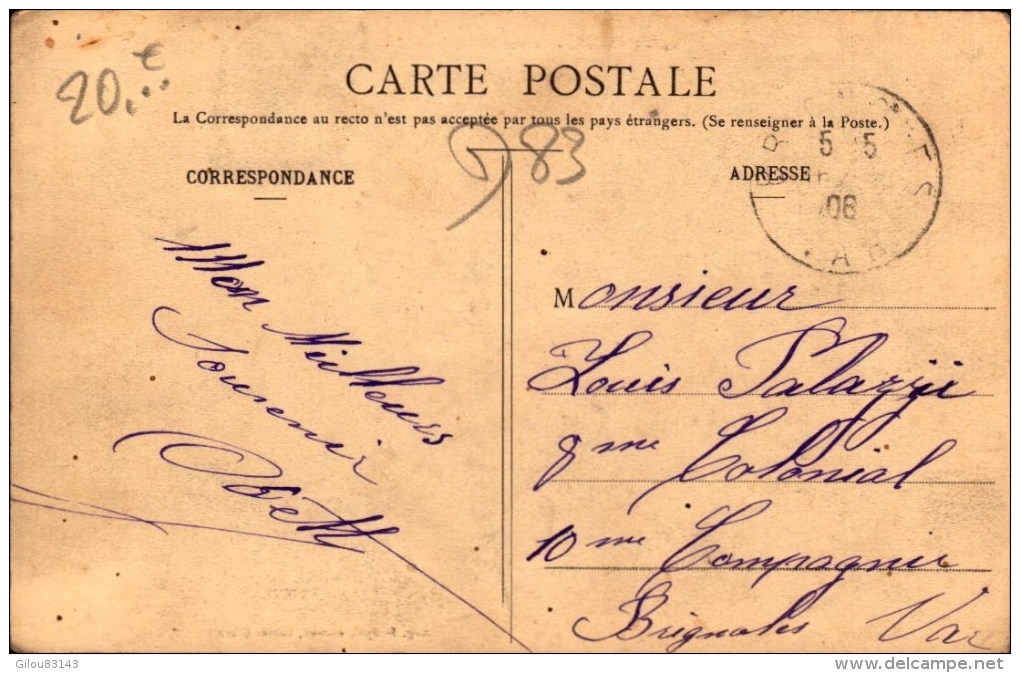 20.€
CARTE POSTALE
La Correspondance au recto n'est pas acceptée par tous les pays étrangers. (Se renseigner à la Poste.)
83
CORRESPONDANCE
ADRESSE
5 5
08
VAR
Mon Meilleurs
Souvenir
Monsieur
Louis Palazzi
8me Colonial
10me Compagnie
Brignoles Var
Gilou83143
www.delcampe.net